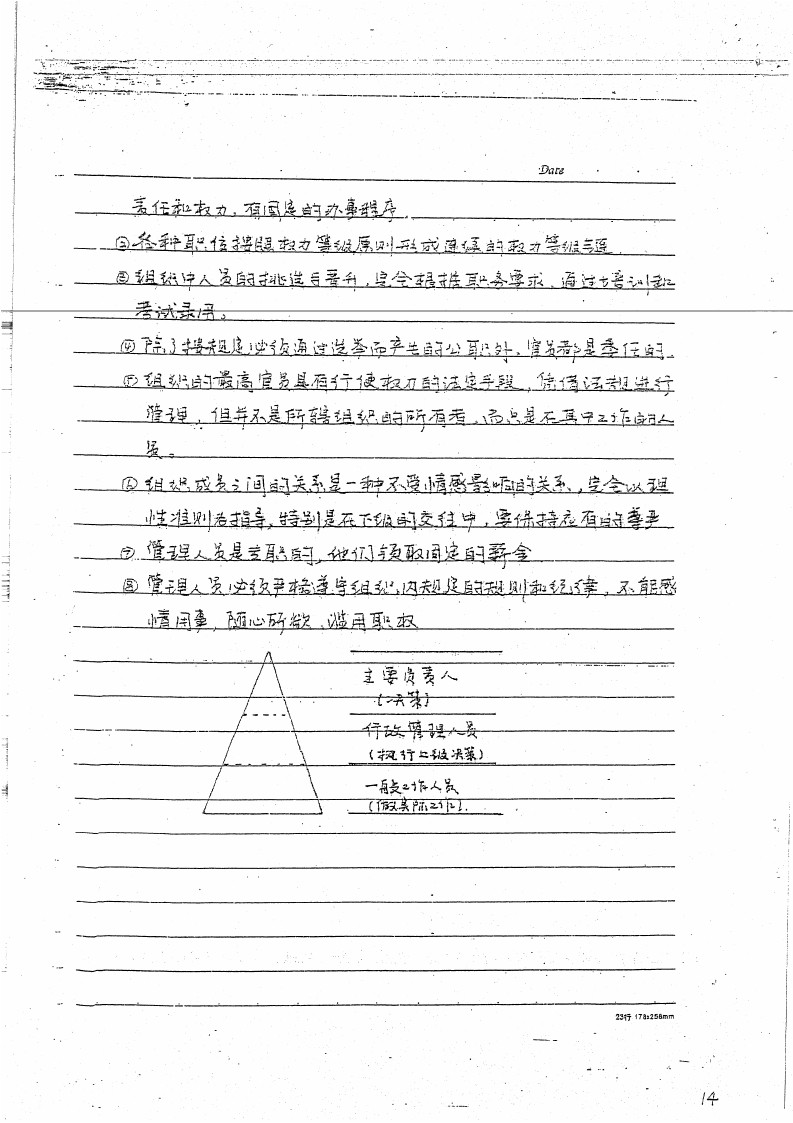 Date
责任和权力，有固定的办事程序．
②各种职位按照权力等级原则形成连续的权力等级链
③组织中人员的挑选与晋升，完全根据职务要求，通过培训和
考试录用。
④除了按规定必须通过选举而产生的公职外，官员都是委任的．
⑤组织的最高官员具有行使权力的法定手段，凭借法规进行
管理，但并不是所辖组织的所有者，而只是在其中工作的人
员。
⑥组织成员之间的关系是一种不受情感影响的关系，完全以理
性准则为指导，特别是在下级的交往中，要保持应有的尊严
⑦管理人员是专职的，他们领取固定的薪金
⑧管理人员必须严格遵守组织内规定的规则和纪律，不能感
情用事，随心所欲，滥用职权
主要负责人
(决策)
行政管理人员
(执行上级决策)
一般工作人员
(做实际工作)．
23行 178x258mm
14